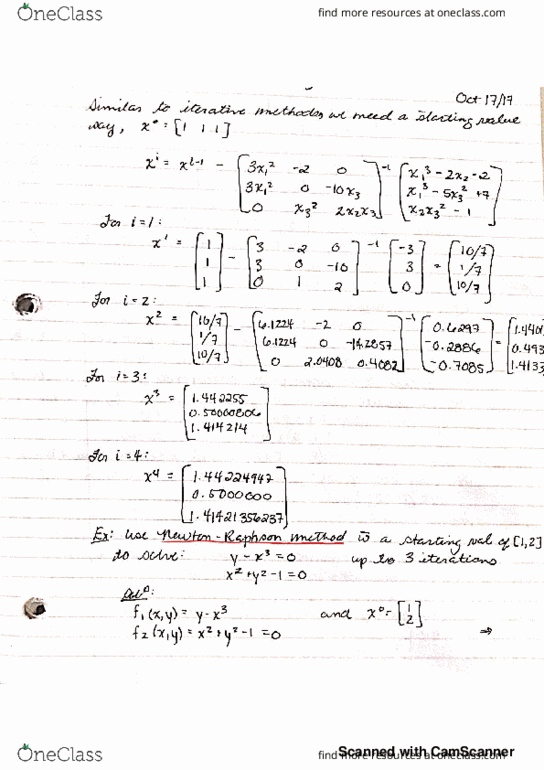 OneClass find more resources at oneclass.com
Oct 17/17
Similar to iterative methods, we need a starting value
say, x⁰ = [1 1 1]
xⁱ = xⁱ⁻¹ - [3x₁² -2 0; 3x₁² 0 -10x₃; 0 x₃² 2x₂x₃]⁻¹ [x₁³ - 2x₂ - 2; x₁³ - 5x₃² + 7; x₂x₃² - 1]
For i=1:
x¹ = [1; 1; 1] - [3 -2 0; 3 0 -10; 0 1 2]⁻¹ [-3; 3; 0] = [10/7; 1/7; 10/7]
For i=2:
x² = [10/7; 1/7; 10/7] - [6.1224 -2 0; 6.1224 0 -14.2857; 0 2.0408 0.4082]⁻¹ [0.6297; -0.2886; -0.7085] = [1.440; 0.493; 1.4133
For i=3:
x³ = [1.442255; 0.50000806; 1.414214]
For i=4:
x⁴ = [1.44224947; 0.5000000; 1.41421356237]
Ex: Use Newton-Raphson method w a starting val of [1,2]
to solve: y - x³ = 0 up to 3 iterations
x² + y² - 1 = 0
f₁(x,y) = y - x³ and x⁰ = [1; 2]
f₂(x,y) = x² + y² - 1 = 0 ⇒
Scanned with CamScanner
OneClass find more resources at oneclass.com